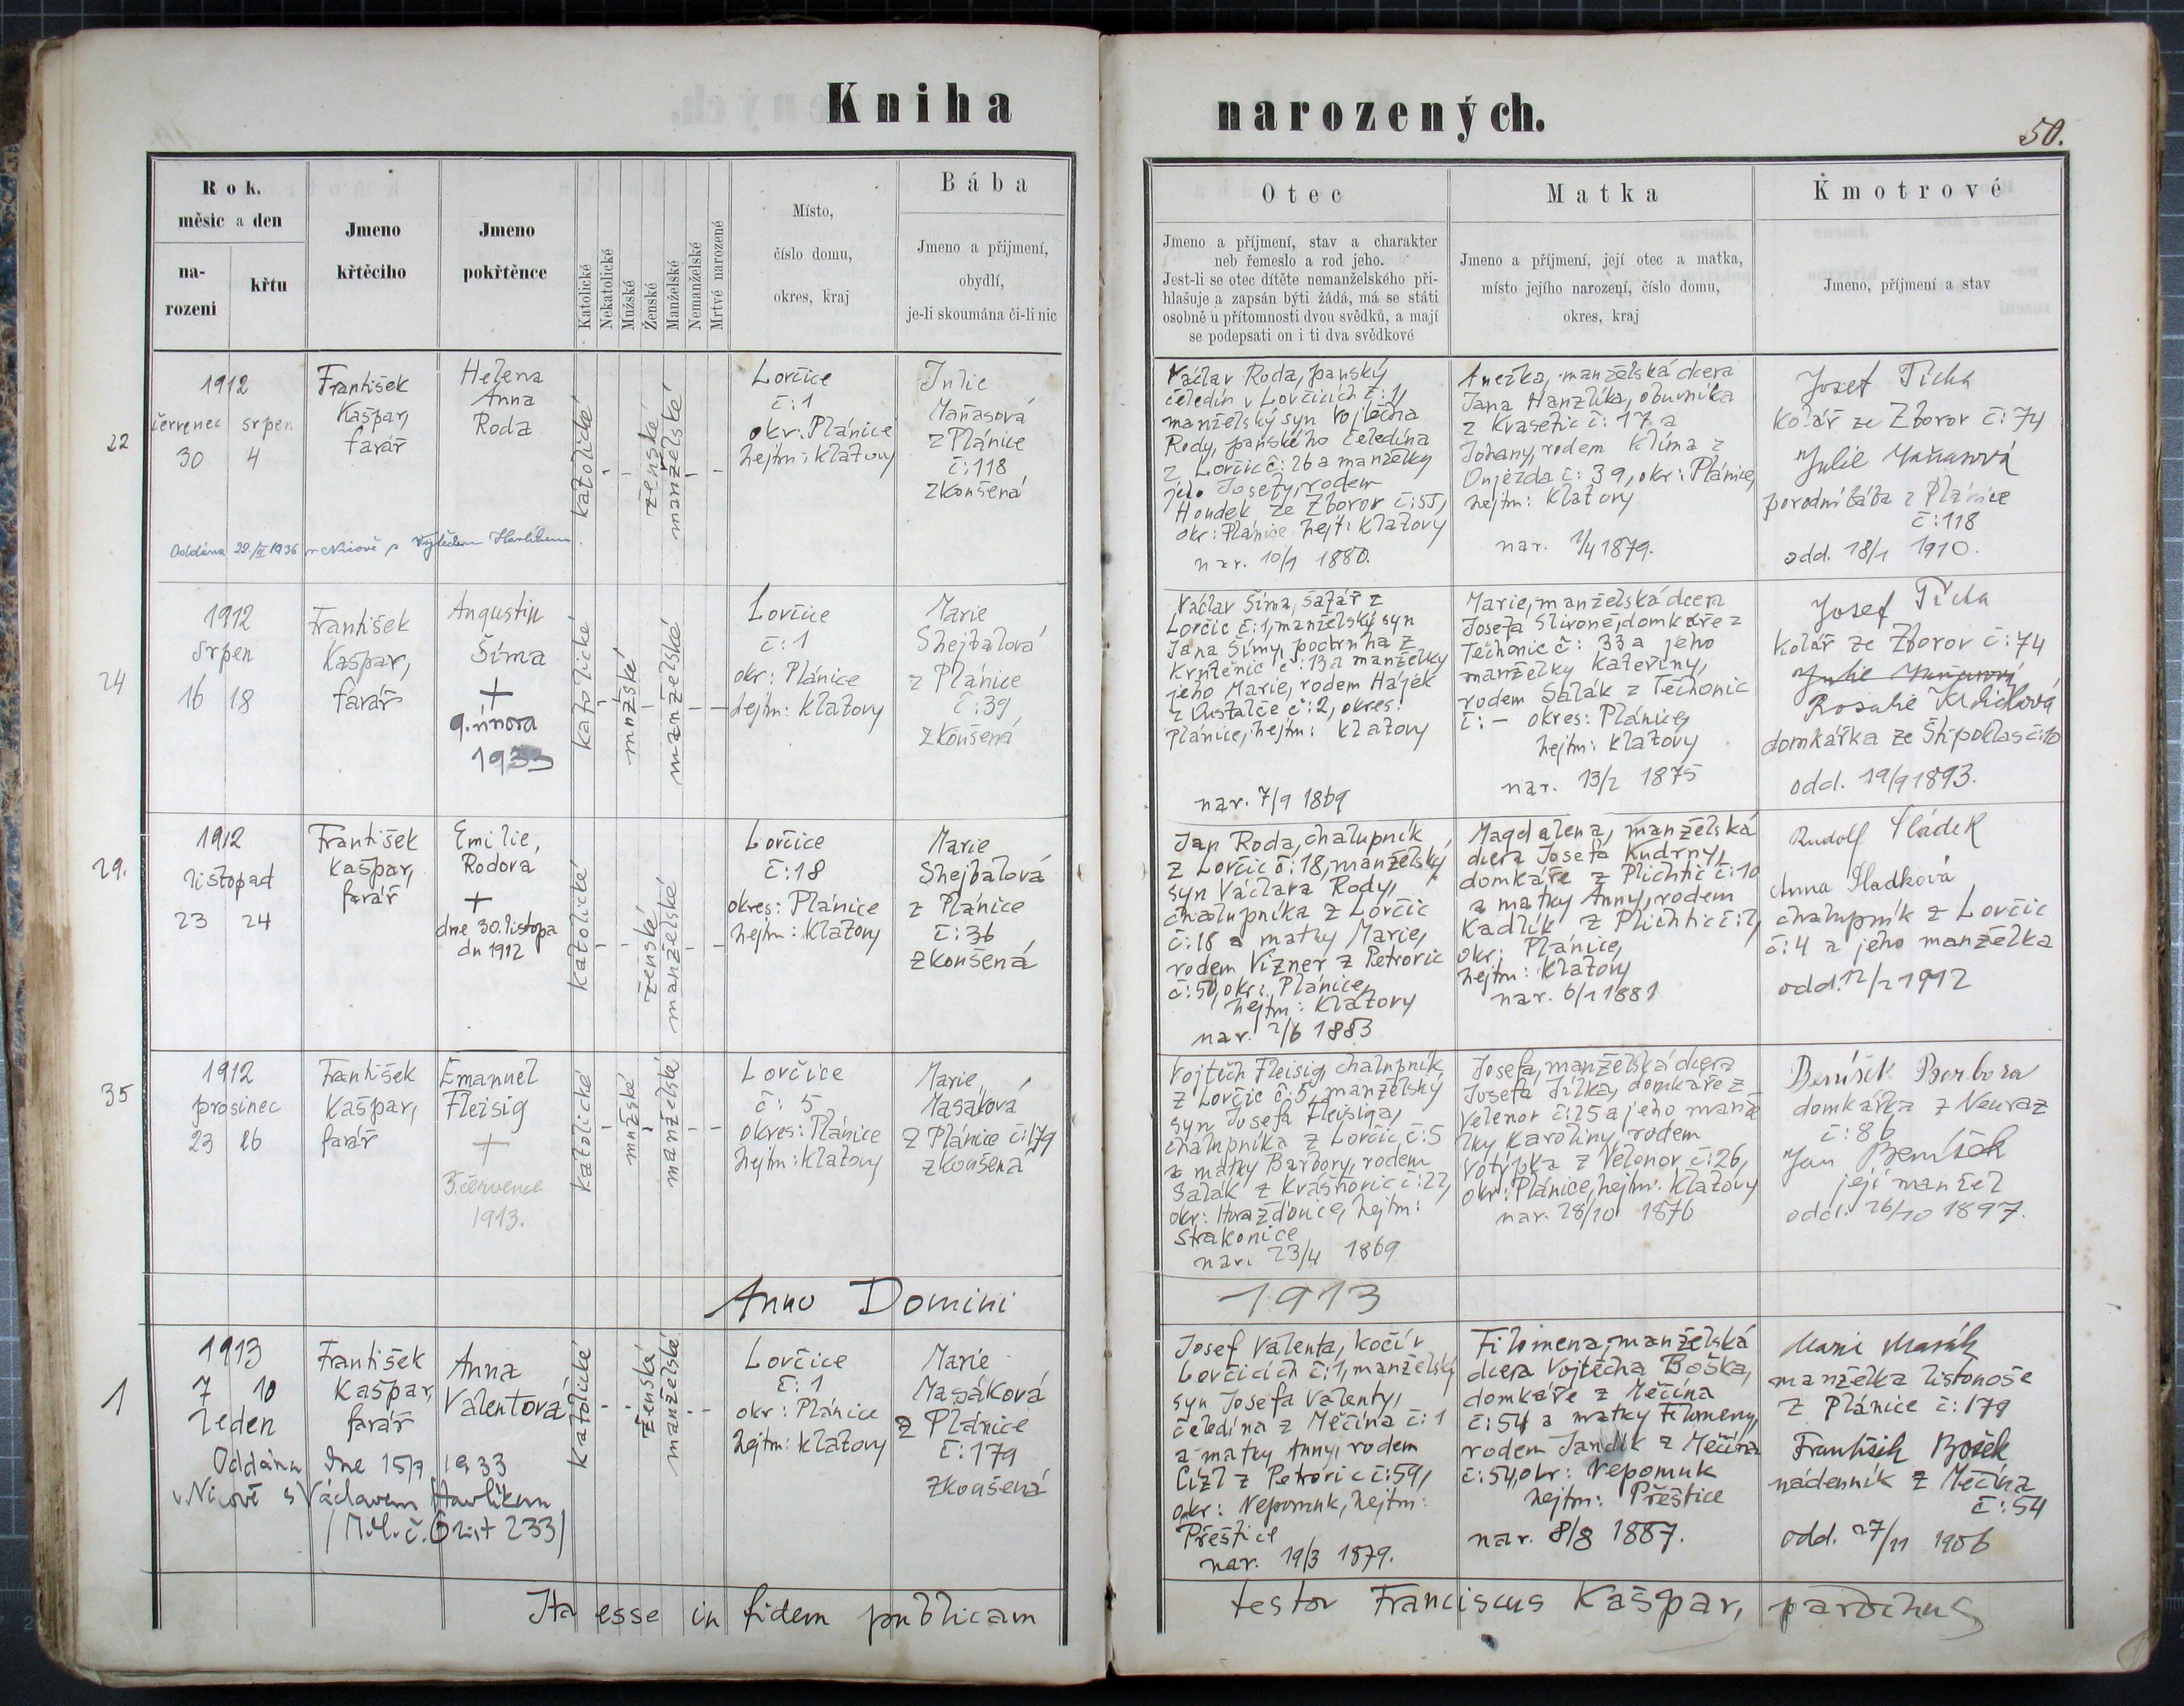 Kniha narozených.
50.
Rok,
měsíc a den
na-
rozeni
křtu
Jmeno
křtěcího
Jmeno
pokřtěnce
Katolické
Nekatolické
Mužské
Ženské
Manželské
Nemanželské
Mrtvé narozené
Místo,
číslo domu,
okres, kraj
Bába
Jmeno a přijmení,
obydlí,
je-li skoumána či-li nic
Otec
Jmeno a příjmení, stav a charakter
neb řemeslo a rod jeho.
Jest-li se otec dítěte nemanželského při-
hlašuje a zapsán býti žádá, má se státi
osobně u přítomnosti dvou svědků, a mají
se podepsati on i ti dva svědkové
Matka
Jmeno a příjmení, její otec a matka,
místo jejího narození, číslo domu,
okres, kraj
Kmotrové
Jmeno, příjmení a stav
22
1912
červenec srpen
30 4
František
Kašpar,
farář
Helena
Anna
Roda
katolické
ženské
manželské
Lovčice
č: 1
okr: Plánice
hejtm: Klatovy
Julie
Maňasová
z Plánice
č: 118
zkoušená
Oddána 22./II 1936 v Nicově s Vojtěchem Havlíkem
Václav Roda, panský
čeledín v Lovčicích č: 1,
manželský syn Vojtěcha
Rody, panského čeledína
z Lovčic č: 26 a manželky
jeho Josefy, rodem
Houdek ze Zborov č: 55,
okr: Plánice hejt: Klatovy
nar. 10/1 1880.
Anežka, manželská dcera
Jana Hanzlíka, obuvníka
z Kvasetic č: 17 a
Johany, rodem Klíma z
Oujezda č: 39, okr: Plánice,
hejtm: Klatovy
nar. 1/4 1879.
Josef Tícha
kolář ze Zborov č: 74
Julie Maňasová
porodní bába z Plánice
č: 118
odd. 18/1 1910.
24
1912
srpen
16 18
František
Kašpar,
farář
Augustin
Šíma
+
9. února
1933
katolické
mužské
manželské
Lovčice
č: 1
okr: Plánice
hejtm: Klatovy
Marie
Shejbalová
z Plánice
č: 39
zkoušená
Václav Šíma, šafář z
Lovčic č: 1, manželský syn
Jana Šímy, podruha z
č: 13 a manželky
jeho Marie, rodem Hájek
č: 2, okres:
Plánice, hejtm: Klatovy
nar. 7/9 1869
Marie, manželská dcera
Josefa Slivoně, domkáře z
Těchonic č: 33 a jeho
manželky Kateřiny,
rodem Salák z Těchonic
č: – okres: Plánice,
hejtm: Klatovy
nar. 13/2 1875
Josef Tícha
kolář ze Zborov č: 74
Julie Maňasová
Rosalie
domkářka ze Štipoklas č: 10
odd. 19/9 1893.
29.
1912
listopad
23 24
František
Kašpar,
farář
Emilie,
Rodova
+
dne 30. listopa
du 1912
katolické
ženské
manželské
Lovčice
č: 18
okres: Plánice
hejtm: Klatovy
Marie
Shejbalová
z Plánice
č: 36
zkoušená
Jan Roda, chalupník
z Lovčic č: 18, manželský
syn Václava Rody,
chalupníka z Lovčic
č: 18 a matky Marie,
rodem Vizner z Petrovic
č: 50, okr: Plánice,
hejtm: Klatovy
nar. 2/6 1883
Magdalena, manželská
dcera Josefa Kudrny,
domkáře z Plichtic č: 10
a matky Anny, rodem
Kadlík z Plichtic č: 2,
okr: Plánice,
hejtm: Klatovy
nar. 6/1 1881
Rudolf Sládek
Anna Sladková
chalupník z Lovčic
č: 4 a jeho manželka
odd. 12/2 1912
35
1912
prosinec
23 26
František
Kašpar,
farář
Emanuel
Fleisig
+
3. července
1913.
katolické
mužské
manželské
Lovčice
č: 5
okres: Plánice
hejtm: Klatovy
Marie
Masáková
z Plánice č: 179
zkoušená
Vojtěch Fleisig, chalupník
z Lovčic č: 5, manželský
syn Josefa Fleisiga,
chalupníka z Lovčic č: 5
a matky Barbory, rodem
Salák z Kvášňovic č: 22,
okr: Horažďovice, hejtm:
Strakonice
nar. 23/4 1869
Josefa, manželská dcera
Josefa Jílka, domkáře z
Velenov č: 25 a jeho manže
lky Karoliny, rodem
Votýpka z Velenov č: 26,
okr: Plánice, hejtm: Klatovy
nar. 28/10 1876
Beníšek Barbora
domkářka z Neuraz
č: 86
Jan Beníšek
její manžel
odd. 26/10 1897.
Anno Domini 1913
1
1913
7 10
leden
František
Kašpar,
farář
Anna
Valentová
Katolické
ženská
manželské
Lovčice
č: 1
okr: Plánice
hejtm: Klatovy
Marie
Masáková
z Plánice
č: 179
zkoušená
Oddána dne 15/7 1933
v Nicově s Václavem Havlíkem
(M.M. č. 6 list 233)
Josef Valenta, kočí v
Lovčicích č: 1, manželský
syn Josefa Valenty,
čeledína z Měčína č: 1
a matky Anny, rodem
Cizl z Petrovic č: 59,
okr: Nepomuk, hejtm:
Přeštice
nar. 19/3 1879.
Filomena, manželská
dcera Vojtěcha Boška,
domkáře z Měčína
č: 54 a matky Filomeny,
rodem Jandík z Měčína
č: 54, okr: Nepomuk
hejtm: Přeštice
nar. 8/8 1887.
Marie Masák
manželka listonoše
z Plánice č: 179
František Bošek
nádenník z Měčína
č: 54
odd. 27/11 1906
Ita esse in fidem publicam testor Franciscus Kašpar, parochus